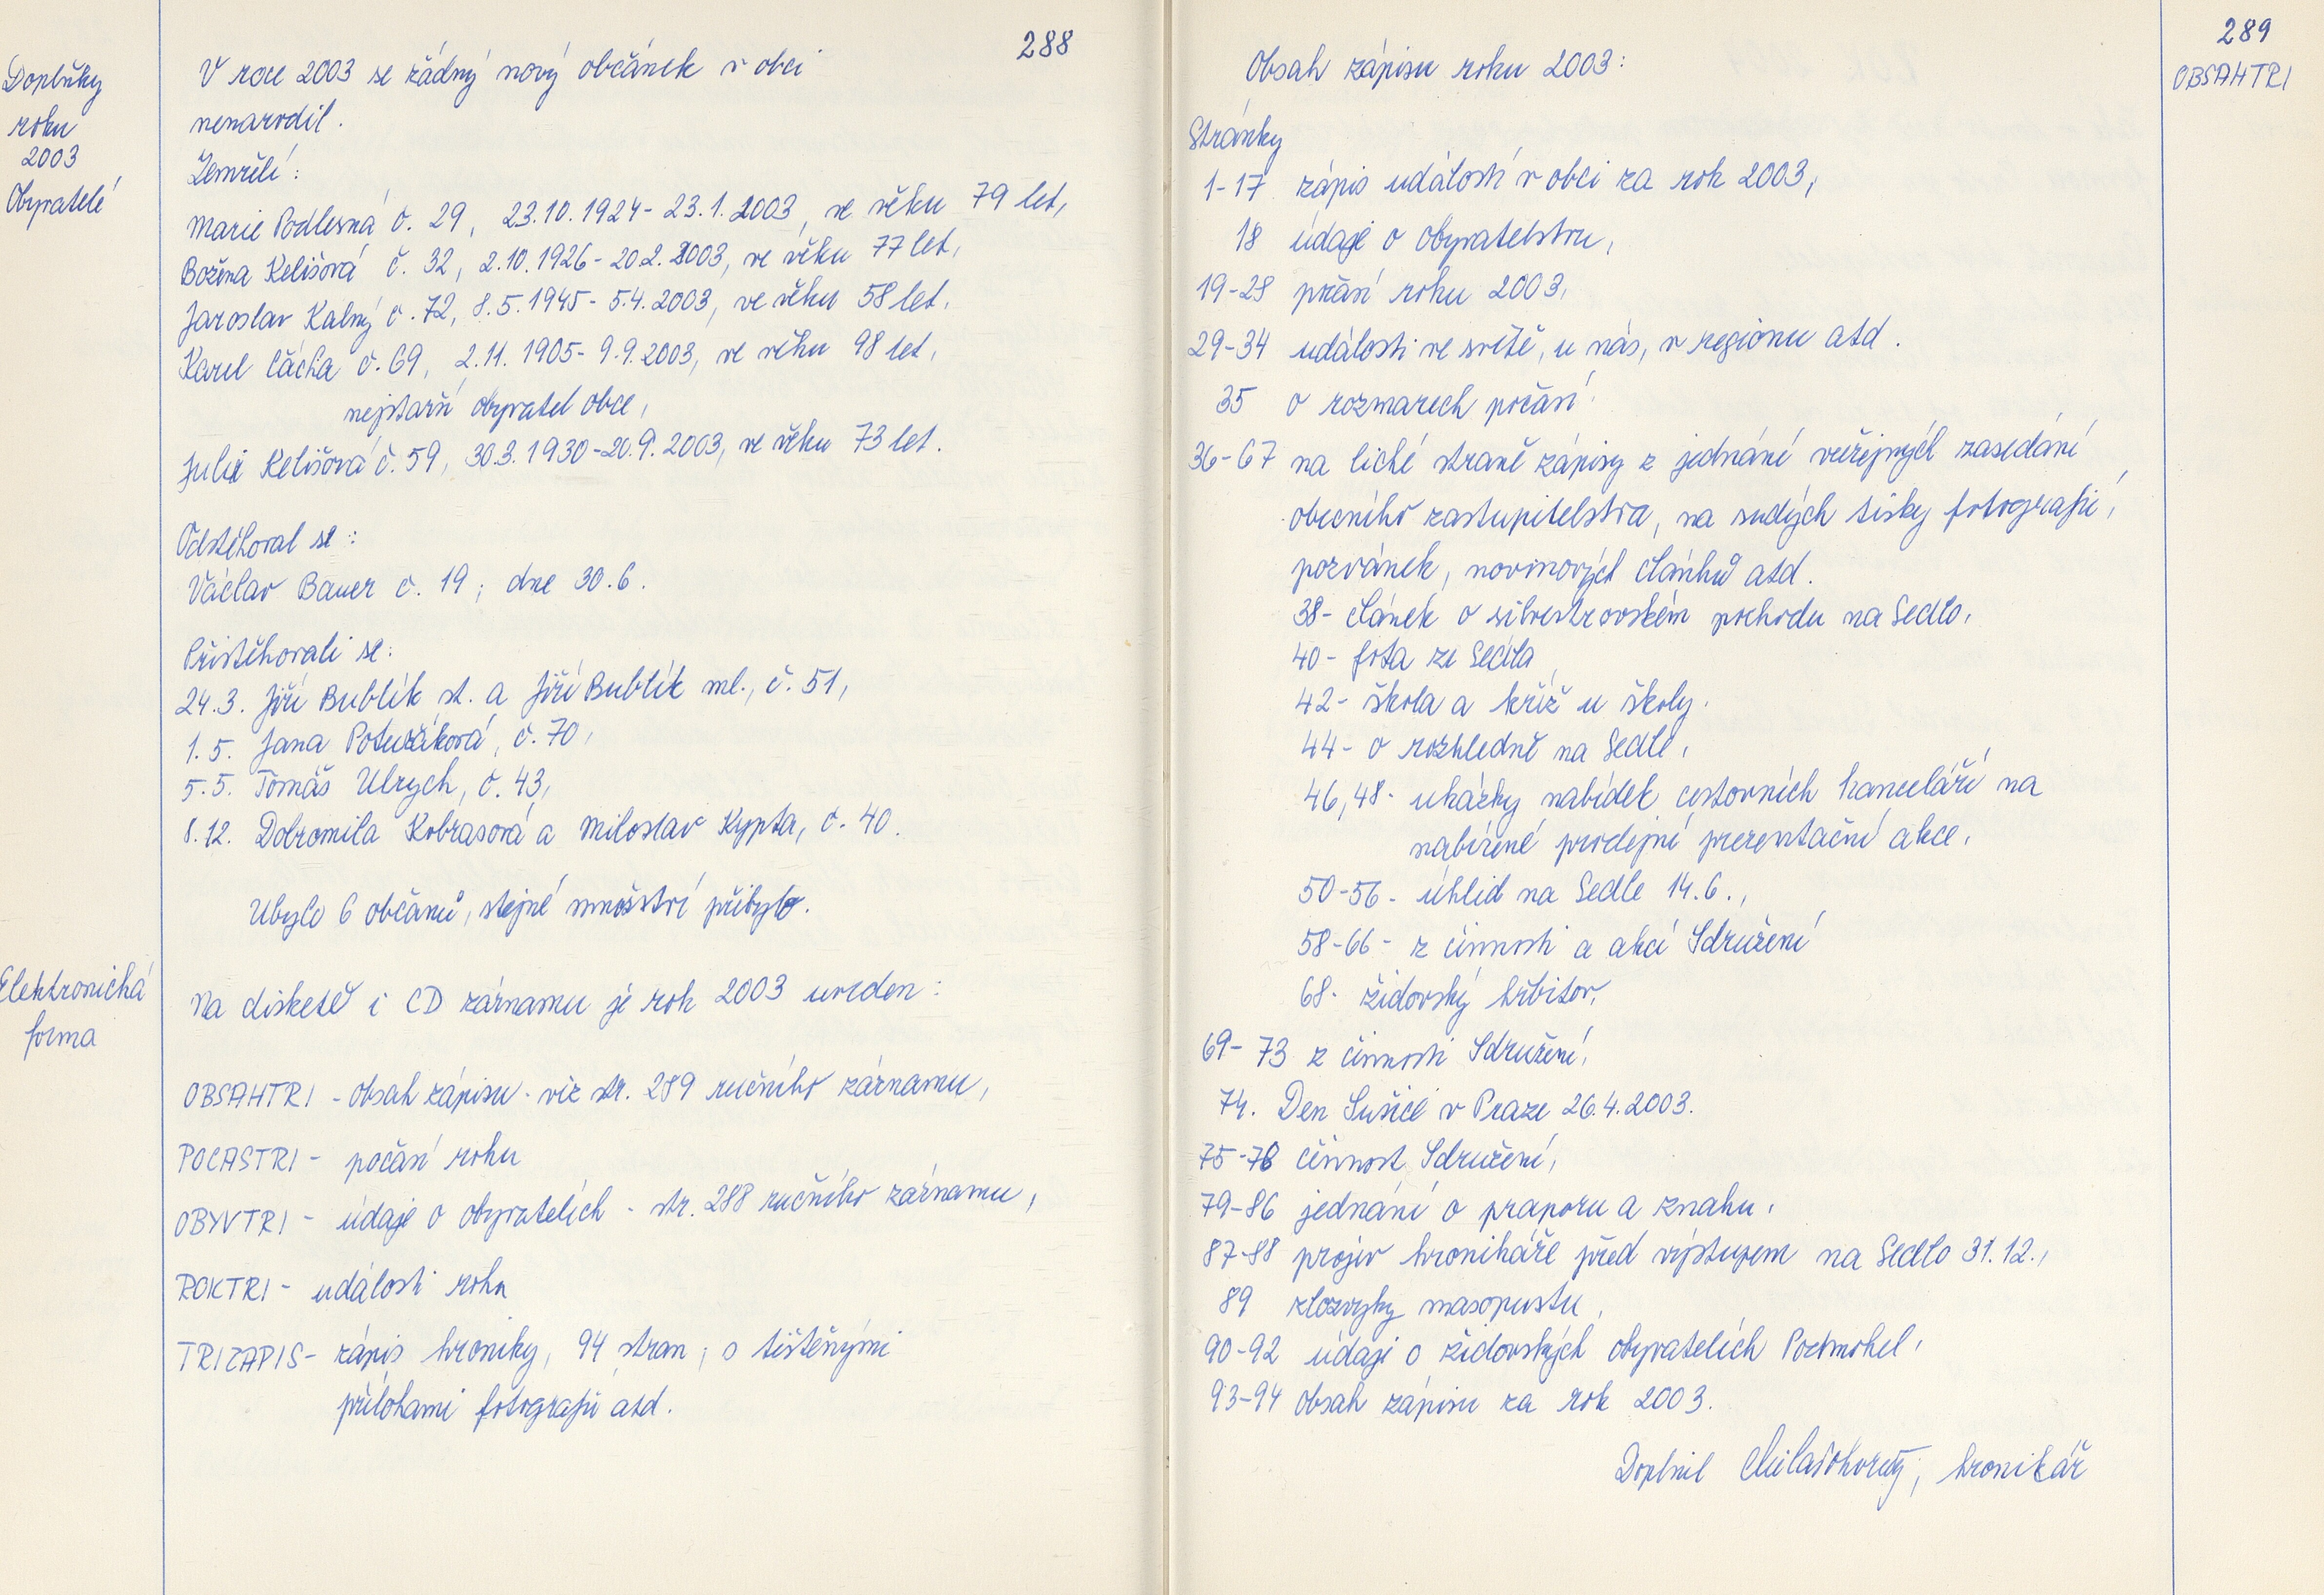 288
Doplňky
roku
2003
Obyvatelé
V roce 2003 se žádný nový občánek v obci
nenarodil.
Zemřelí:
Marie Podlesná č. 29, 23.10.1924- 23.1.2003, ve věku 79 let,
Božena Kelišová č. 32, 2.10.1926- 20.2.2003, ve věku 77 let,
Jaroslav Kalný č. 72, 8.5.1945- 5.4.2003, ve věku 58 let,
Karel Čácha č. 69, 2.11.1905- 9.9.2003, ve věku 98 let,
nejstarší obyvatel obce,
Julie Kelišová č. 59, 30.3.1930-20.9.2003, ve věku 73 let.
Odstěhoval se:
Václav Bauer č. 19; dne 30.6.
Přistěhovali se:
24.3. Jiří Bublík st. a Jiří Bublík ml., č. 51,
1.5. Jana Potužáková, č. 70,
5.5. Tomáš Ulrych, č. 43,
8.12. Dobromila Kobrasová a Miloslav Kypta, č. 40.
Ubylo 6 občanů, stejné množství přibylo.
Elektronická
forma
Na disketě i CD záznamu je rok 2003 uveden:
OBSAHTRI - obsah zápisu - viz str. 289 ručního záznamu,
POCASTRI - počasí roku
OBYVTRI - údaje o obyvatelích - str. 288 ručního záznamu,
ROKTRI - události roku
TRIZAPIS- zápis kroniky, 94 stran; s tištěnými
přílohami fotografií atd.
289
OBSAHTRI
Obsah zápisu roku 2003:
Stránky
1-17 zápis událostí v obci za rok 2003,
18 údaje o obyvatelstvu,
19-28 přání roku 2003,
29-34 události ve světě, u nás, v regionu atd.
35 o rozmarech počasí
36-67 na liché straně zápisy z jednání veřejných zasedání
obecního zastupitelstva, na sudých tisky fotografií,
pozvánek, novinových článků atd.
38- článek o silvestrovském pochodu na Sedlo,
40- fota ze Sedla,
42- škola a kříž u školy.
44- o rozhledně na Sedle,
46,48- ukázky nabídek cestovních kanceláří na
nabízené prodejní prezentační akce,
50-56- úklid na Sedle 14.6.,
58-66- z činnosti a akcí Sdružení
68- židovský hřbitov,
69-73 z činnosti Sdružení,
74. Den Sušice v Praze 26.4.2003.
75-78 činnost Sdružení,
79-86 jednání o praporu a znaku,
87-88 projev kronikáře před výstupem na Sedlo 31.12.,
89 zlozvyky masopustu,
90-92 údaje o židovských obyvatelích Podmokel,
93-94 obsah zápisu za rok 2003.
Doplnil kronikář